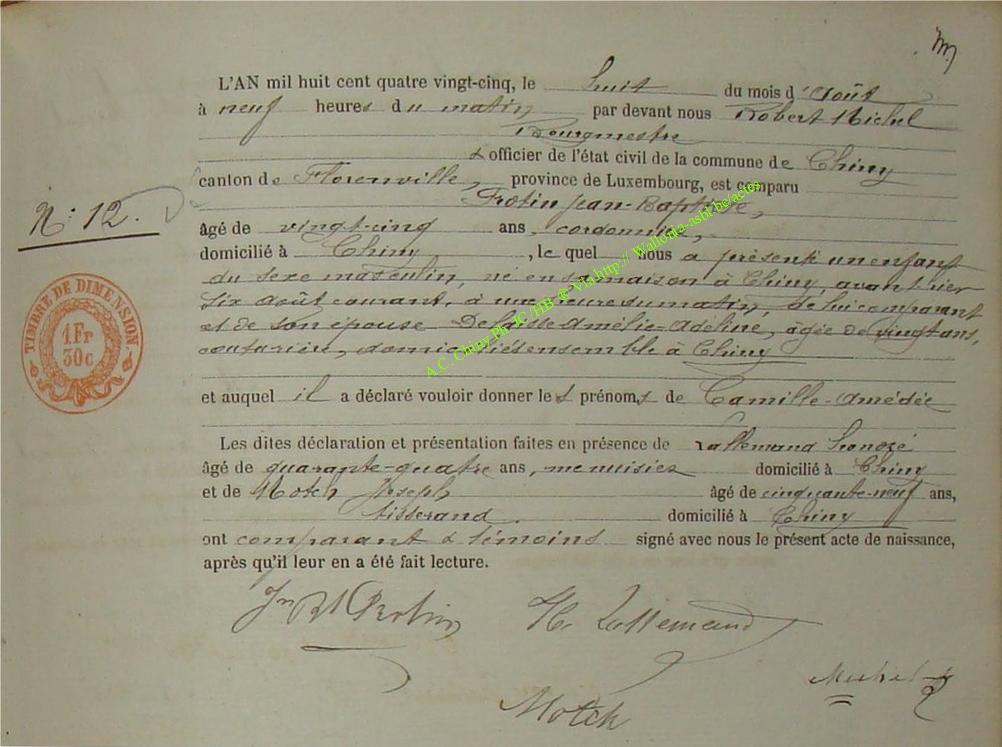 L'AN mil huit cent quatre vingt-cinq, le huit du mois d'août
à neuf heures du matin par devant nous Robert Michel
Bourgmestre
& officier de l'état civil de la commune de Chiny
canton de Florenville, province de Luxembourg, est comparu
N° 12.
Jean-Baptiste,
âgé de vingt-cinq ans, cordonnier,
domicilié à Chiny, le quel nous a présenté un enfant
du sexe masculin, né en sa maison à Chiny, avant-hier
six août courant, à une heure du matin, de lui comparant
et de son épouse Amélie-Adeline, âgée de vingt ans,
couturière, domiciliés ensemble à Chiny
TIMBRE DE DIMENSION.
1 Fr
30c
A.C. Chiny Ph. JC /HB ® Via http:// Wallonia-asbl.be/actes
et auquel il a déclaré vouloir donner les prénoms de Camille-Amédée
Les dites déclaration et présentation faites en présence de Lallemand Honoré
âgé de quarante-quatre ans, menuisier domicilié à Chiny
et de Motch Joseph âgé de cinquante-neuf ans,
tisserand. domicilié à Chiny
ont comparant & témoins signé avec nous le présent acte de naissance,
après qu'il leur en a été fait lecture.
H. Lallemand
Michel
Motch